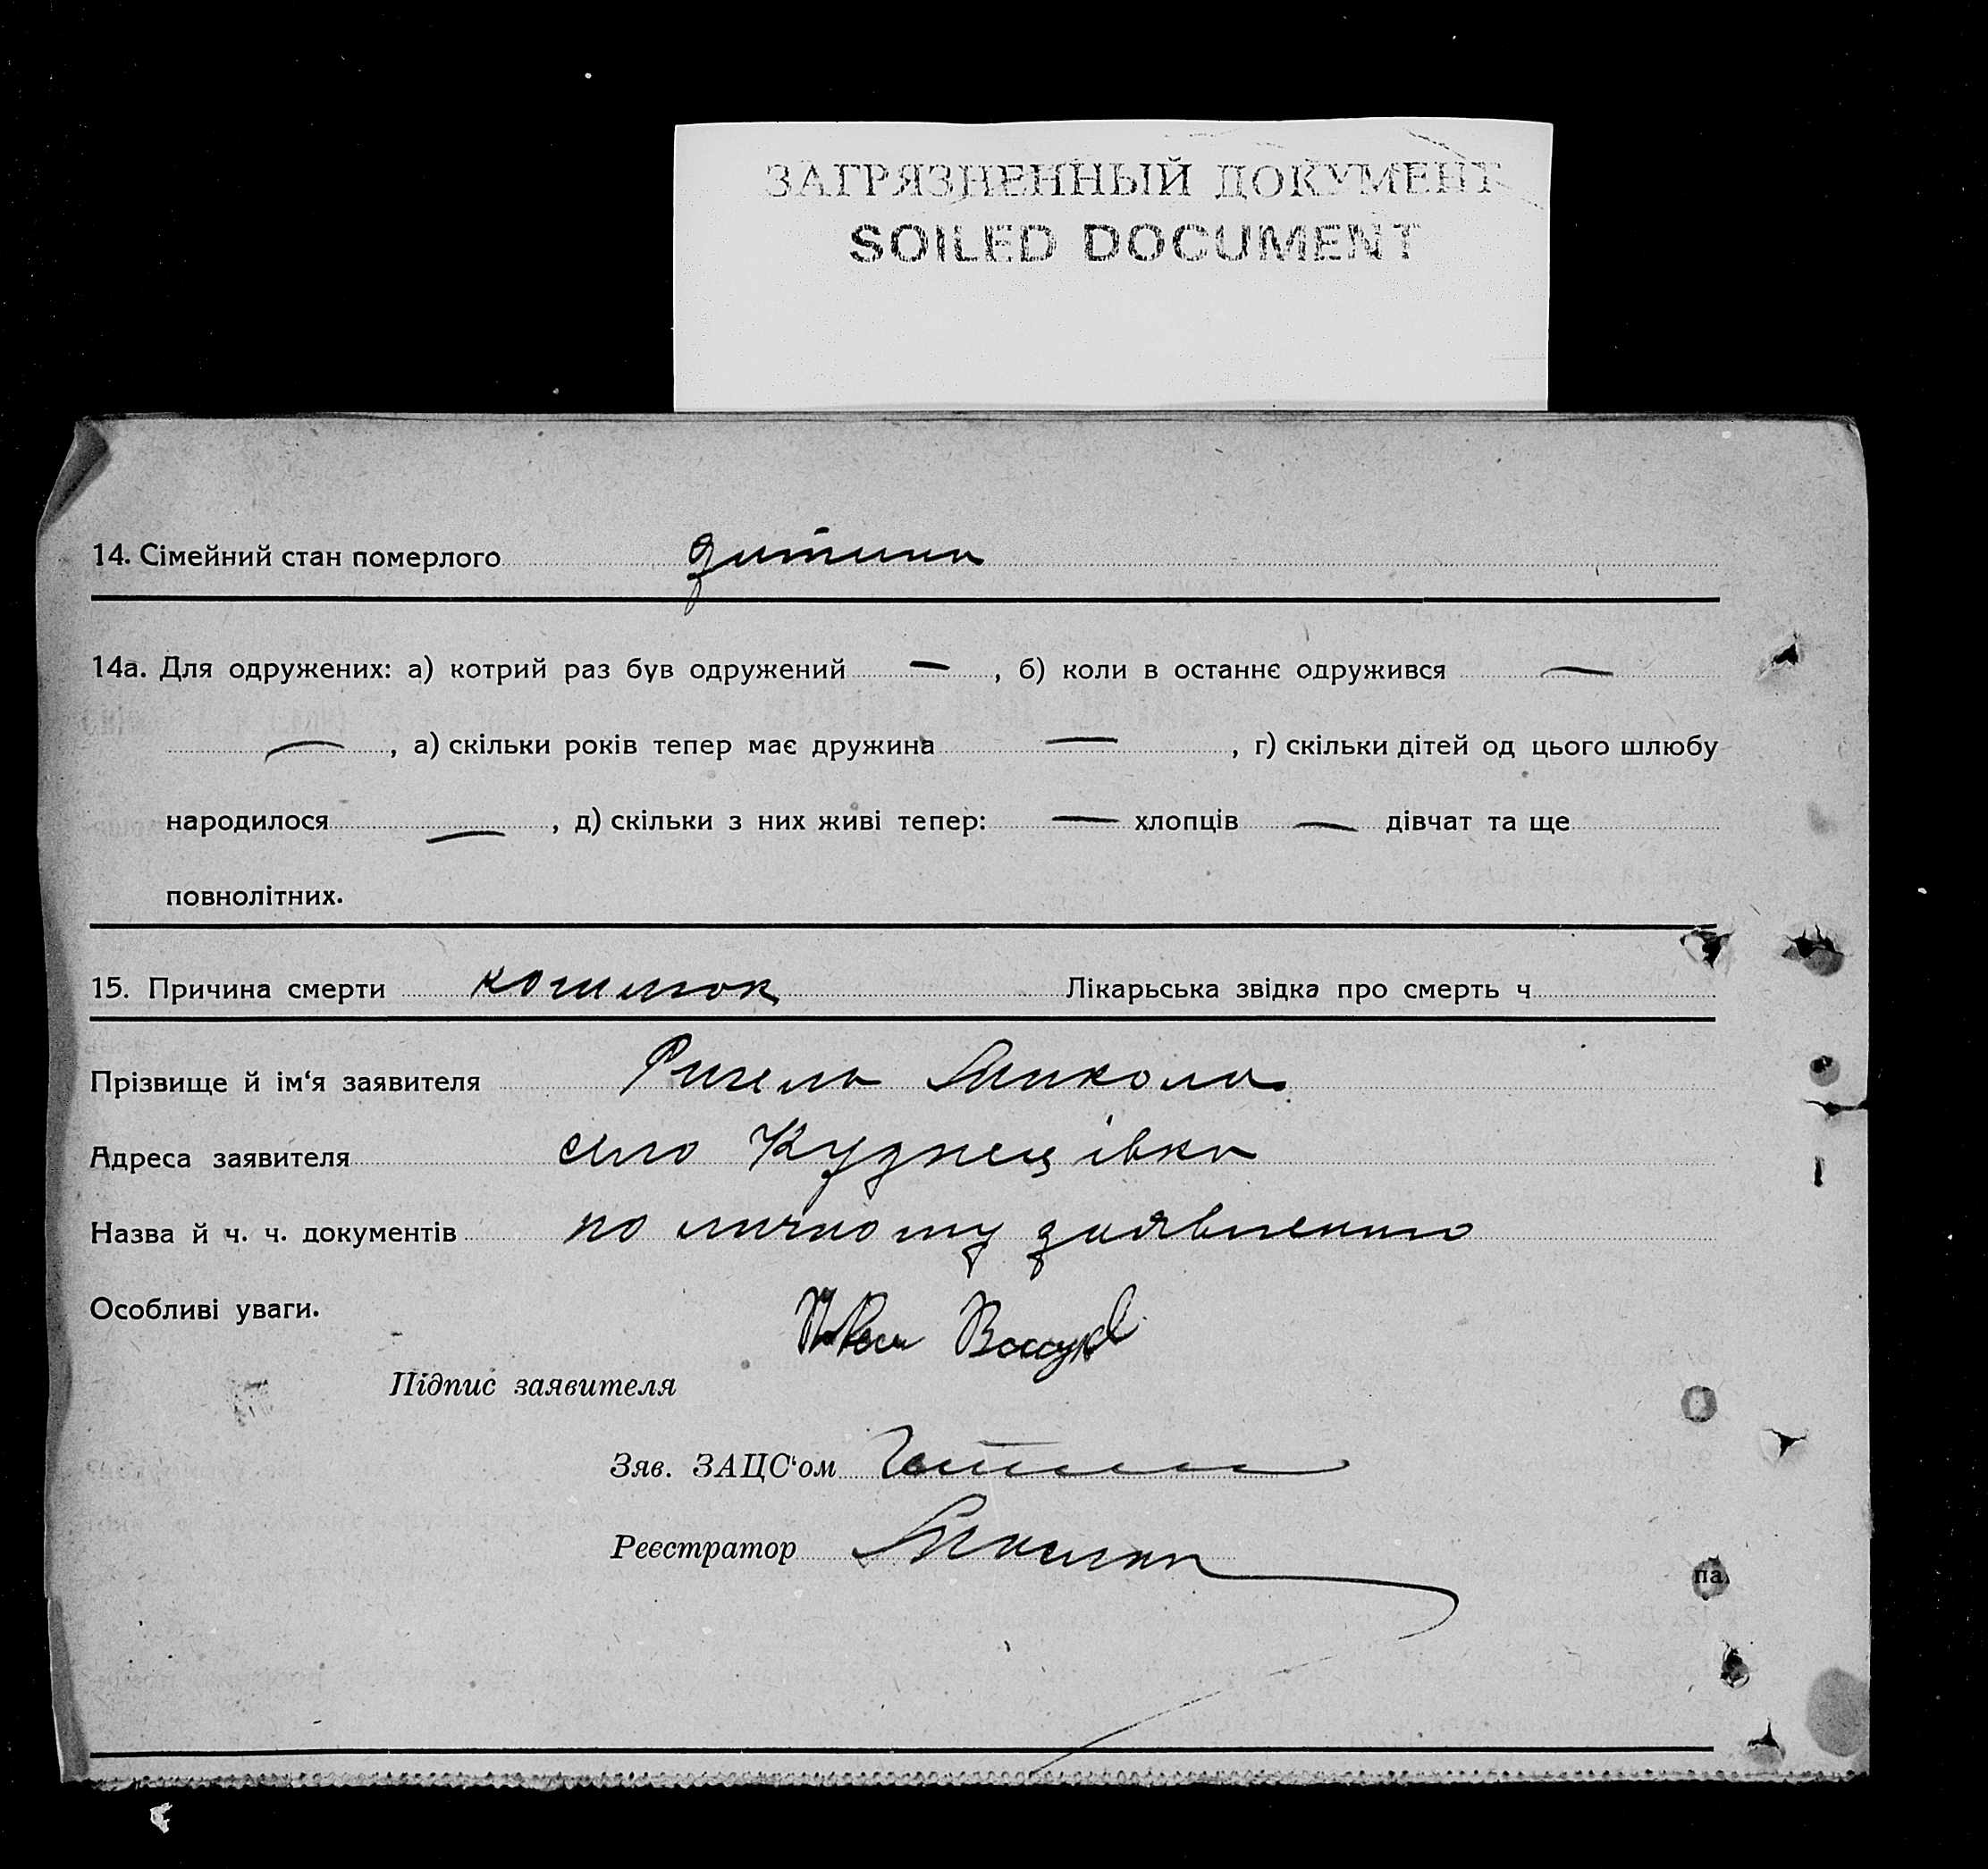 ЗАГРЯЗНЕННЫЙ ДОКУМЕНТ
SOILED DOCUMENT
14. Сімейний стан померлого дитина
14а. Для одружених: а) котрий раз був одружений — , б) коли в останнє одружився —
— , а) скільки років тепер має дружина — , г) скільки дітей од цього шлюбу
народилося — , д) скільки з них живі тепер: — хлопців — дівчат та ще
повнолітних.
15. Причина смерти кошлюк Лікарська звідка про смерть ч
Прізвище й ім‘я заявителя Микола
Адреса заявителя село Кузнецівка
Назва й ч. ч. документів по личному заявлению
Особливі уваги.
Підпис заявителя
Зяв. ЗАЦС‘ом
Реєстратор
па